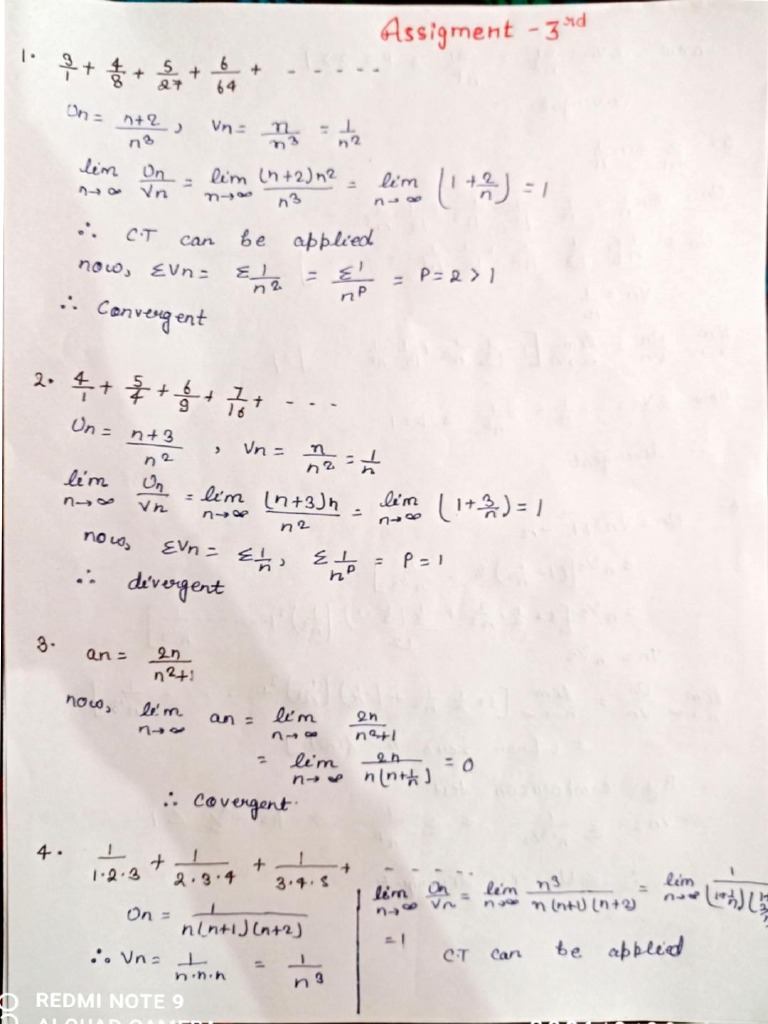 Assigment - 3rd
1. 3/1 + 4/8 + 5/27 + 6/64 + - - - - -
Un = n+2/n3, Vn = n/n3 = 1/n2
lim n→∞ Un/Vn = lim n→∞ (n+2)n2/n3 = lim n→∞ (1+2/n) = 1
∴ C.T can be applied
now, ΣVn = Σ1/n2 = Σ1/nP = P=2>1
∴ Convergent
2. 4/1 + 5/4 + 6/9 + 7/16 + - - -
Un = n+3/n2, Vn = n/n2 = 1/n
lim n→∞ Un/Vn = lim n→∞ (n+3)n/n2 = lim n→∞ (1+3/n) = 1
now, ΣVn = Σ1/n, Σ1/nP = P=1
∴ divergent
3. an = 2n/n2+1
now, lim n→∞ an = lim n→∞ 2n/n2+1
= lim n→∞ 2n/n(n+1/n) = 0
∴ Covergent.
4. 1/1·2·3 + 1/2·3·4 + 1/3·4·5 + - - - - -
Un = 1/n(n+1)(n+2)
∴ Vn = 1/n·n·n = 1/n3
lim n→∞ Un/Vn = lim n→∞ n3/n(n+1)(n+2) = lim n→∞ 1/(1+1/n)
= 1
CT can be applied
REDMI NOTE 9